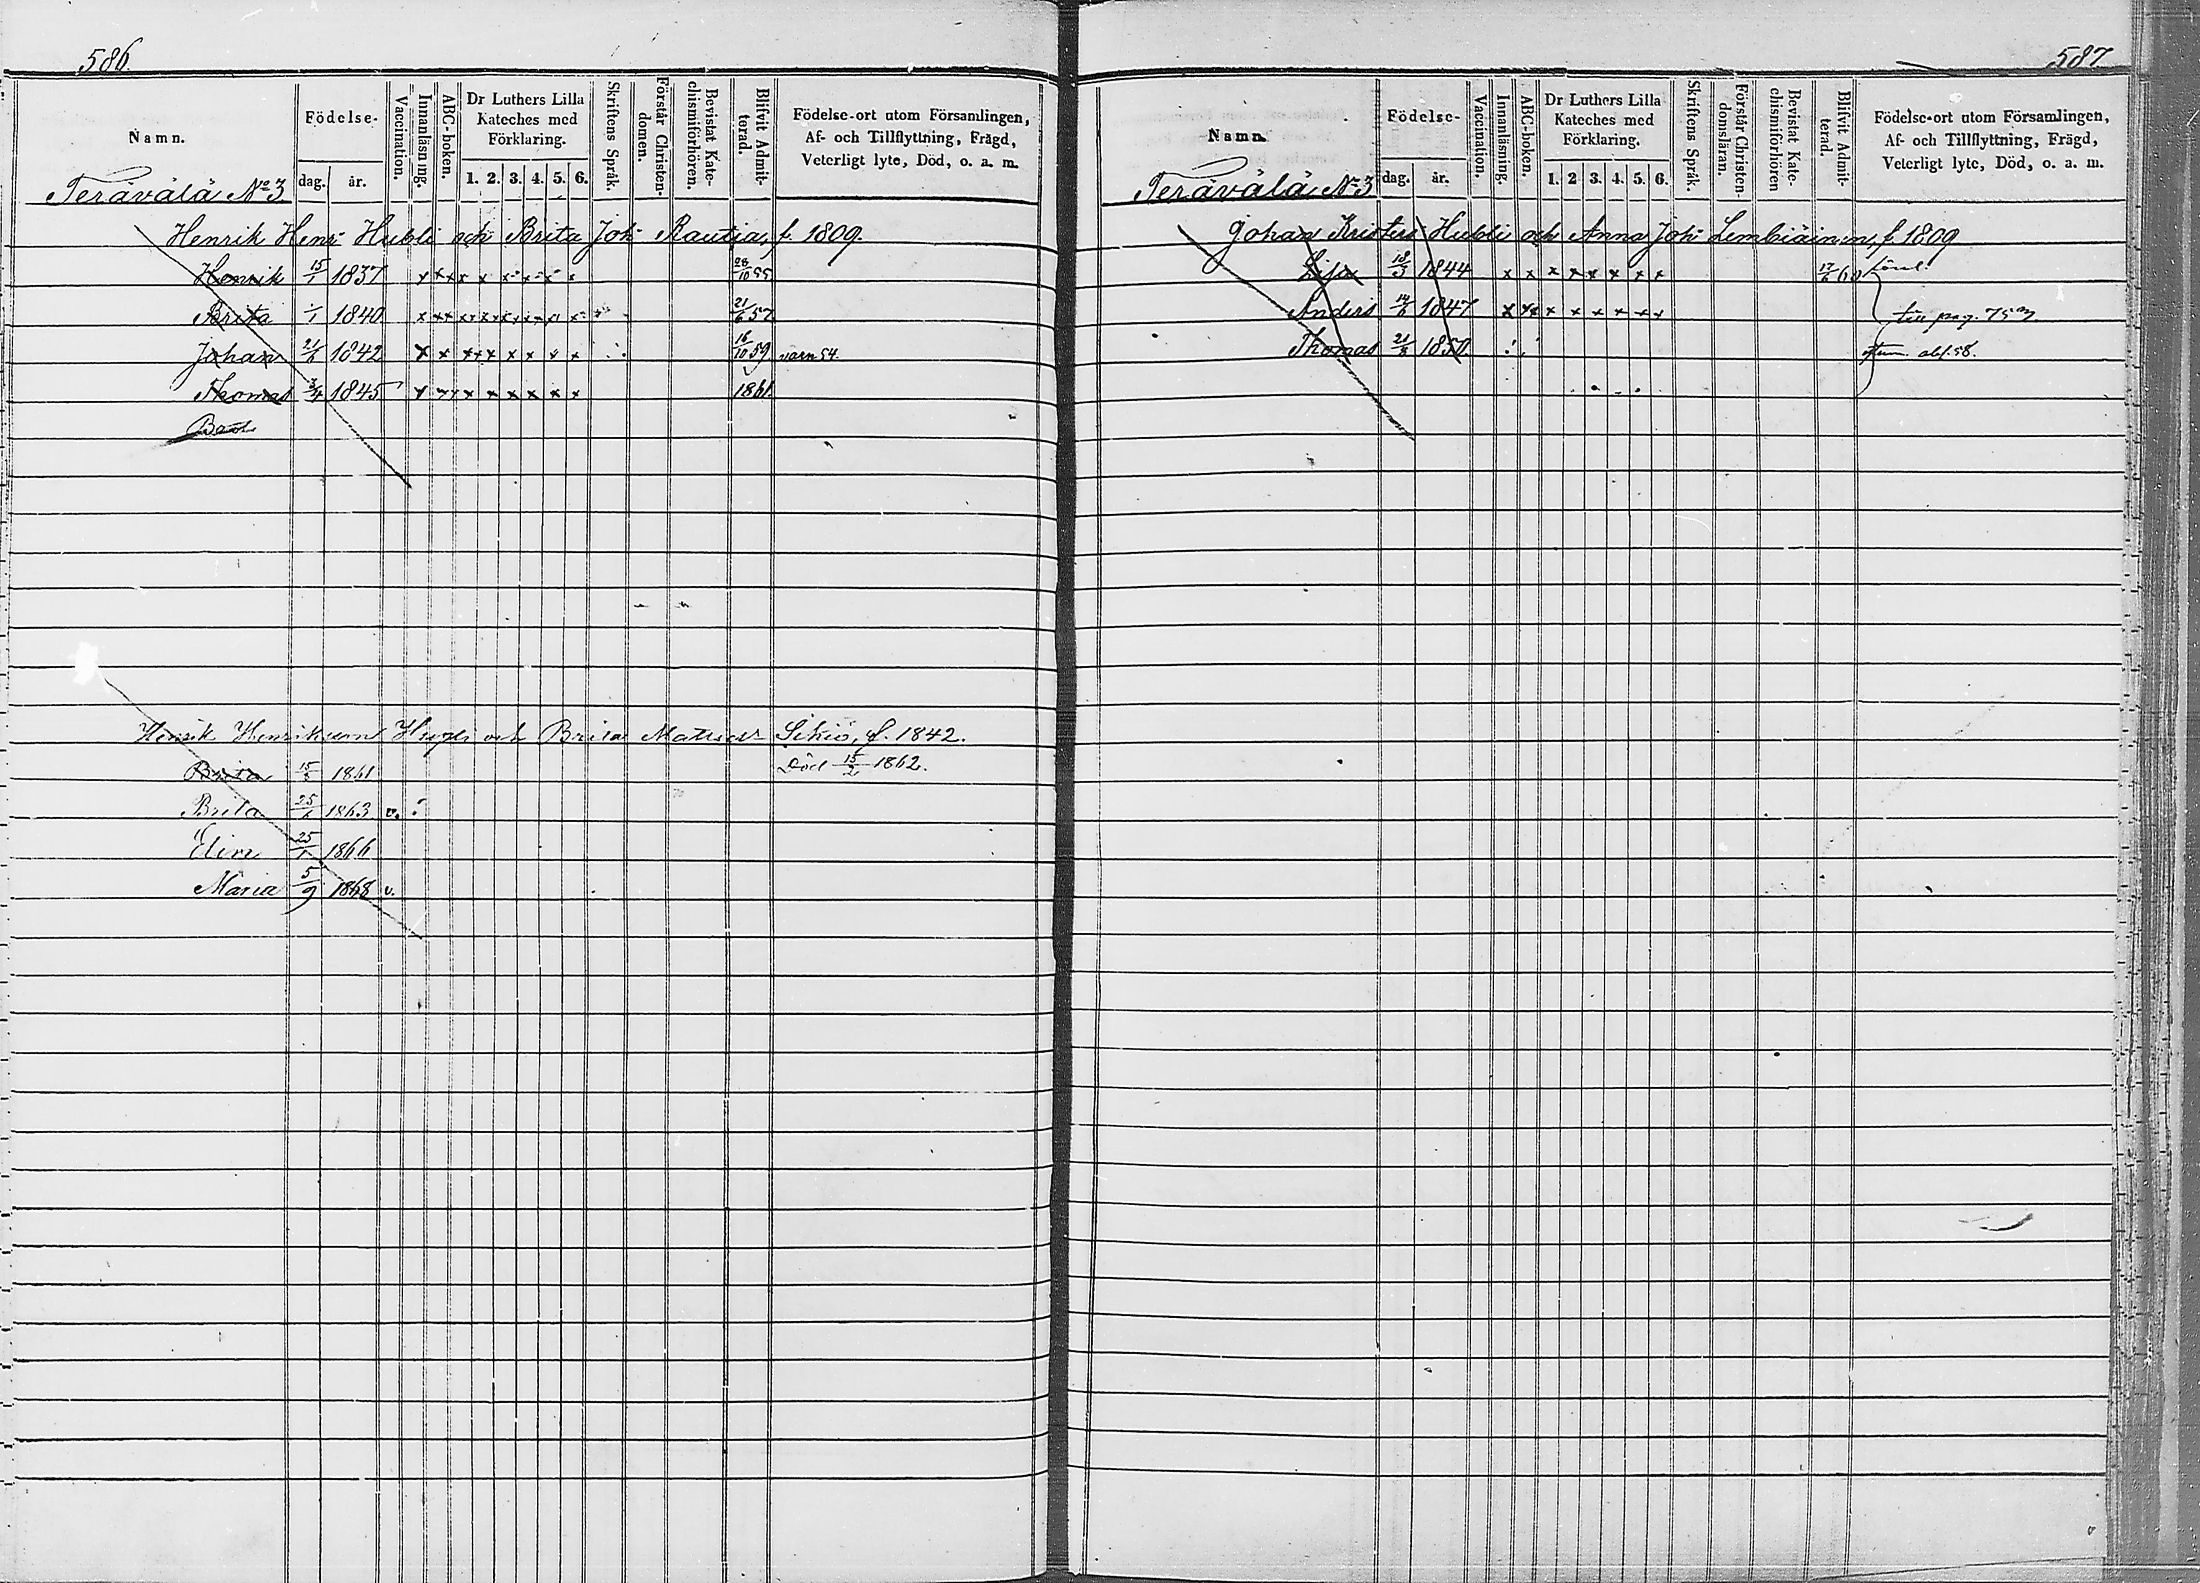 586.
Namn. Födelse- dag. år. Vaccination. Innanläsning. ABC-boken. Dr Luthers Lilla Kateches med Förklaring. 1. 2. 3. 4. 5. 6. Skriftens Språk. Förstår Christen-domen. Bevistat Kate-chismiförhören. Blifvit Admit-terad. Födelse-ort utom Församlingen, Af- och Tillflyttning, Frägd, Veterligt lyte, Död, o. a. m.
Terävälä No 3
Henrik Hens Hubli och Brita Joh Rautia, f. 1809.
Henrik 15/1 1837 x x x x x x x x x 28/10 55
Brita 1/1 1840 x x x x x x x x x 21/6 57
Johan 21/6 1842 x x x x x x x x 16/10 59 54.
Thomas 3/4 1845 x x x x x x x 1861.
Henrik Henriksson och Brita Sikiö, f. 1842.
Brita 1861 Död 15/2 1862.
Brita 25 1863 v.
Elin 25/1 1866
Maria 5/9 1868 v.
587
Namn. Födelse- dag. år. Vaccination. Innanläsning. ABC-boken. Dr Luthers Lilla Kateches med Förklaring. 1. 2 3. 4. 5. 6. Skriftens Språk. Förstår Christen-domsläran. Bevistat Kate-chismiförhören Blifvit Admit-terad. Födelse-ort utom Församlingen, Af- och Tillflyttning, Frägd, Veterligt lyte, Död, o. a. m.
Terävälä No 3
Johan Kristers Hubli och Anna Joh Lembiäinen, f 1809
Lisa 18/3 1844 x x x x x x x x 17/6 60
Anders 1847 x x x x x x x x till pag.
Thomas 21 1850. 58.